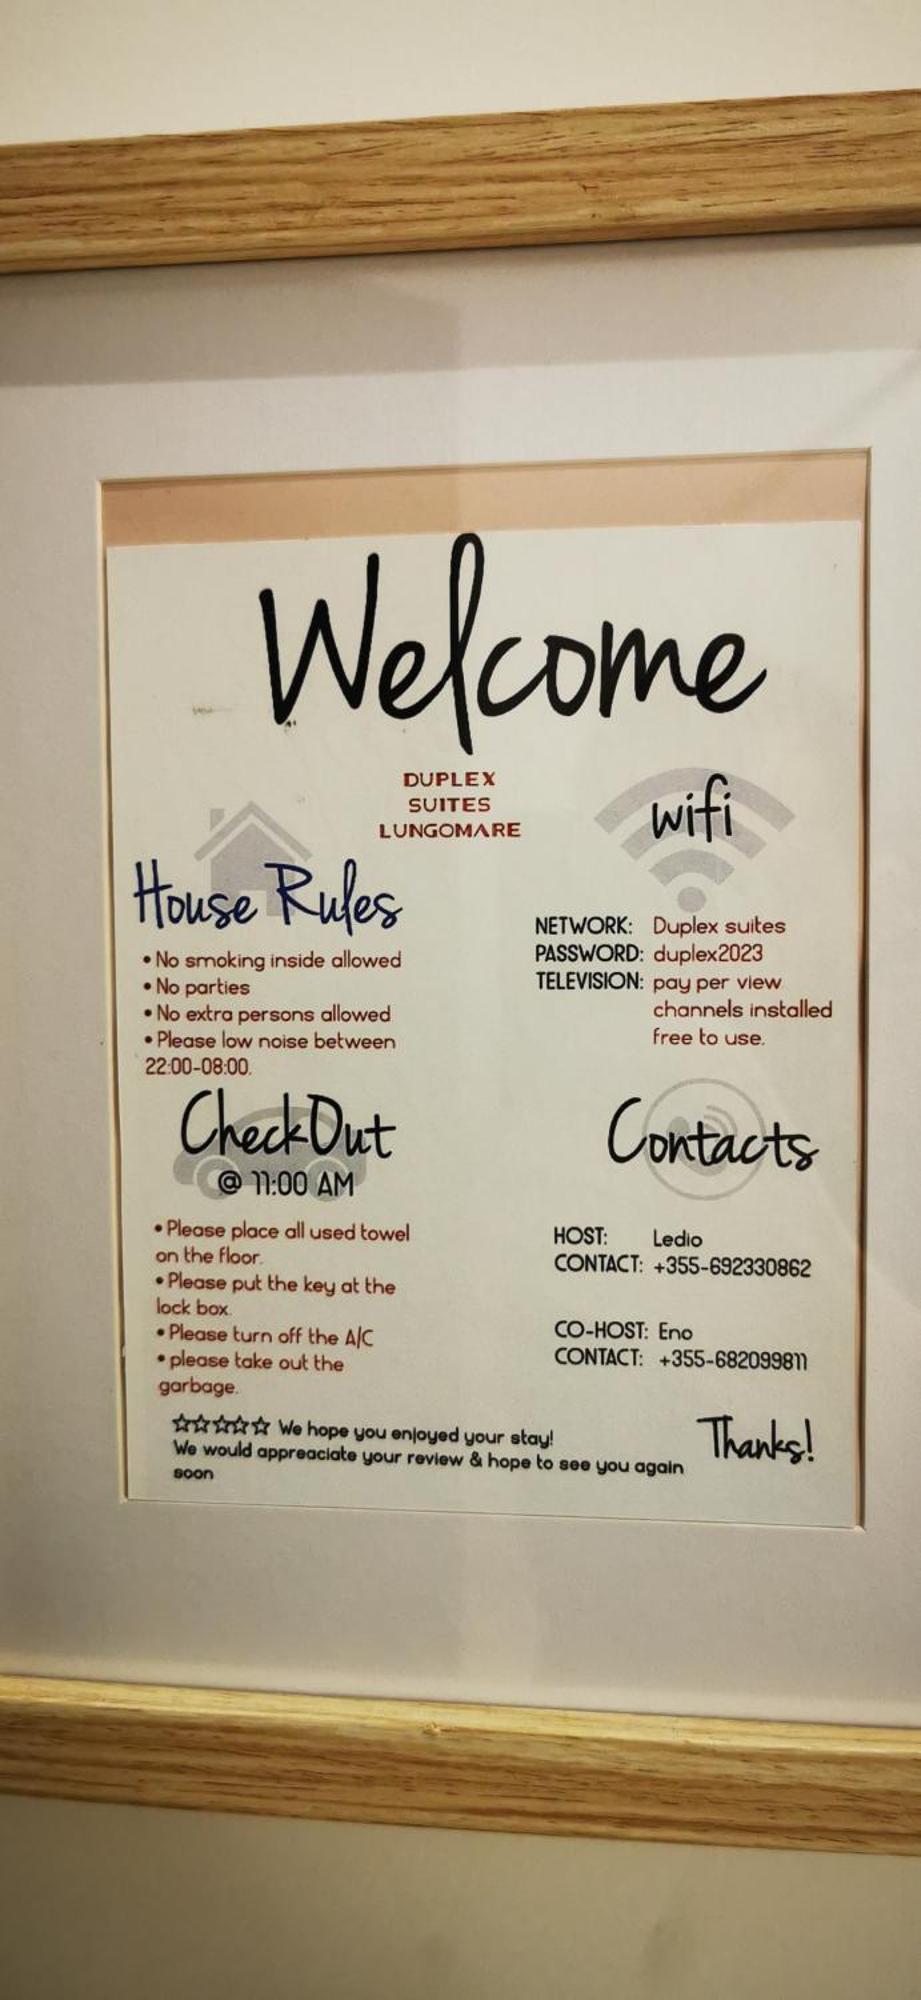 Welcome
DUPLEX
SUITES
LUNGOMARE
House Rules
• No smoking inside allowed
• No parties
• No extra persons allowed
• Please low noise between
22:00-08:00.
wifi
NETWORK: Duplex suites
PASSWORD: duplex2023
TELEVISION: pay per view
channels installed
free to use.
CheckOut
@ 11:00 AM
• Please place all used towel
on the floor.
• Please put the key at the
lock box.
• Please turn off the A/C
• please take out the
garbage.
Contacts
HOST: Ledio
CONTACT: +355-692330862
CO-HOST: Eno
CONTACT: +355-682099811
☆☆☆☆☆ We hope you enjoyed your stay!
We would appreaciate your review & hope to see you again
soon
Thanks!